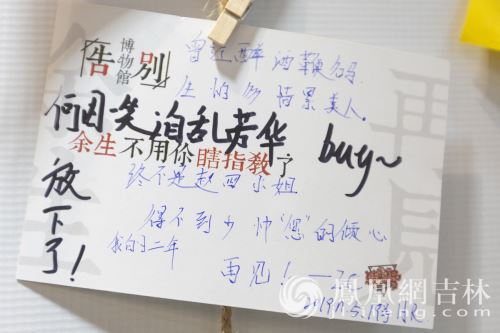 告别
博物館
曾红醉酒鞭名马.
生怕多情累美人。
何因笑 乱芳华 buy~
余生不用你瞎指教了
放下了！
终不是赵四小姐
得不到少帅“您”的倾心
二年
再见！
鳳凰網吉林